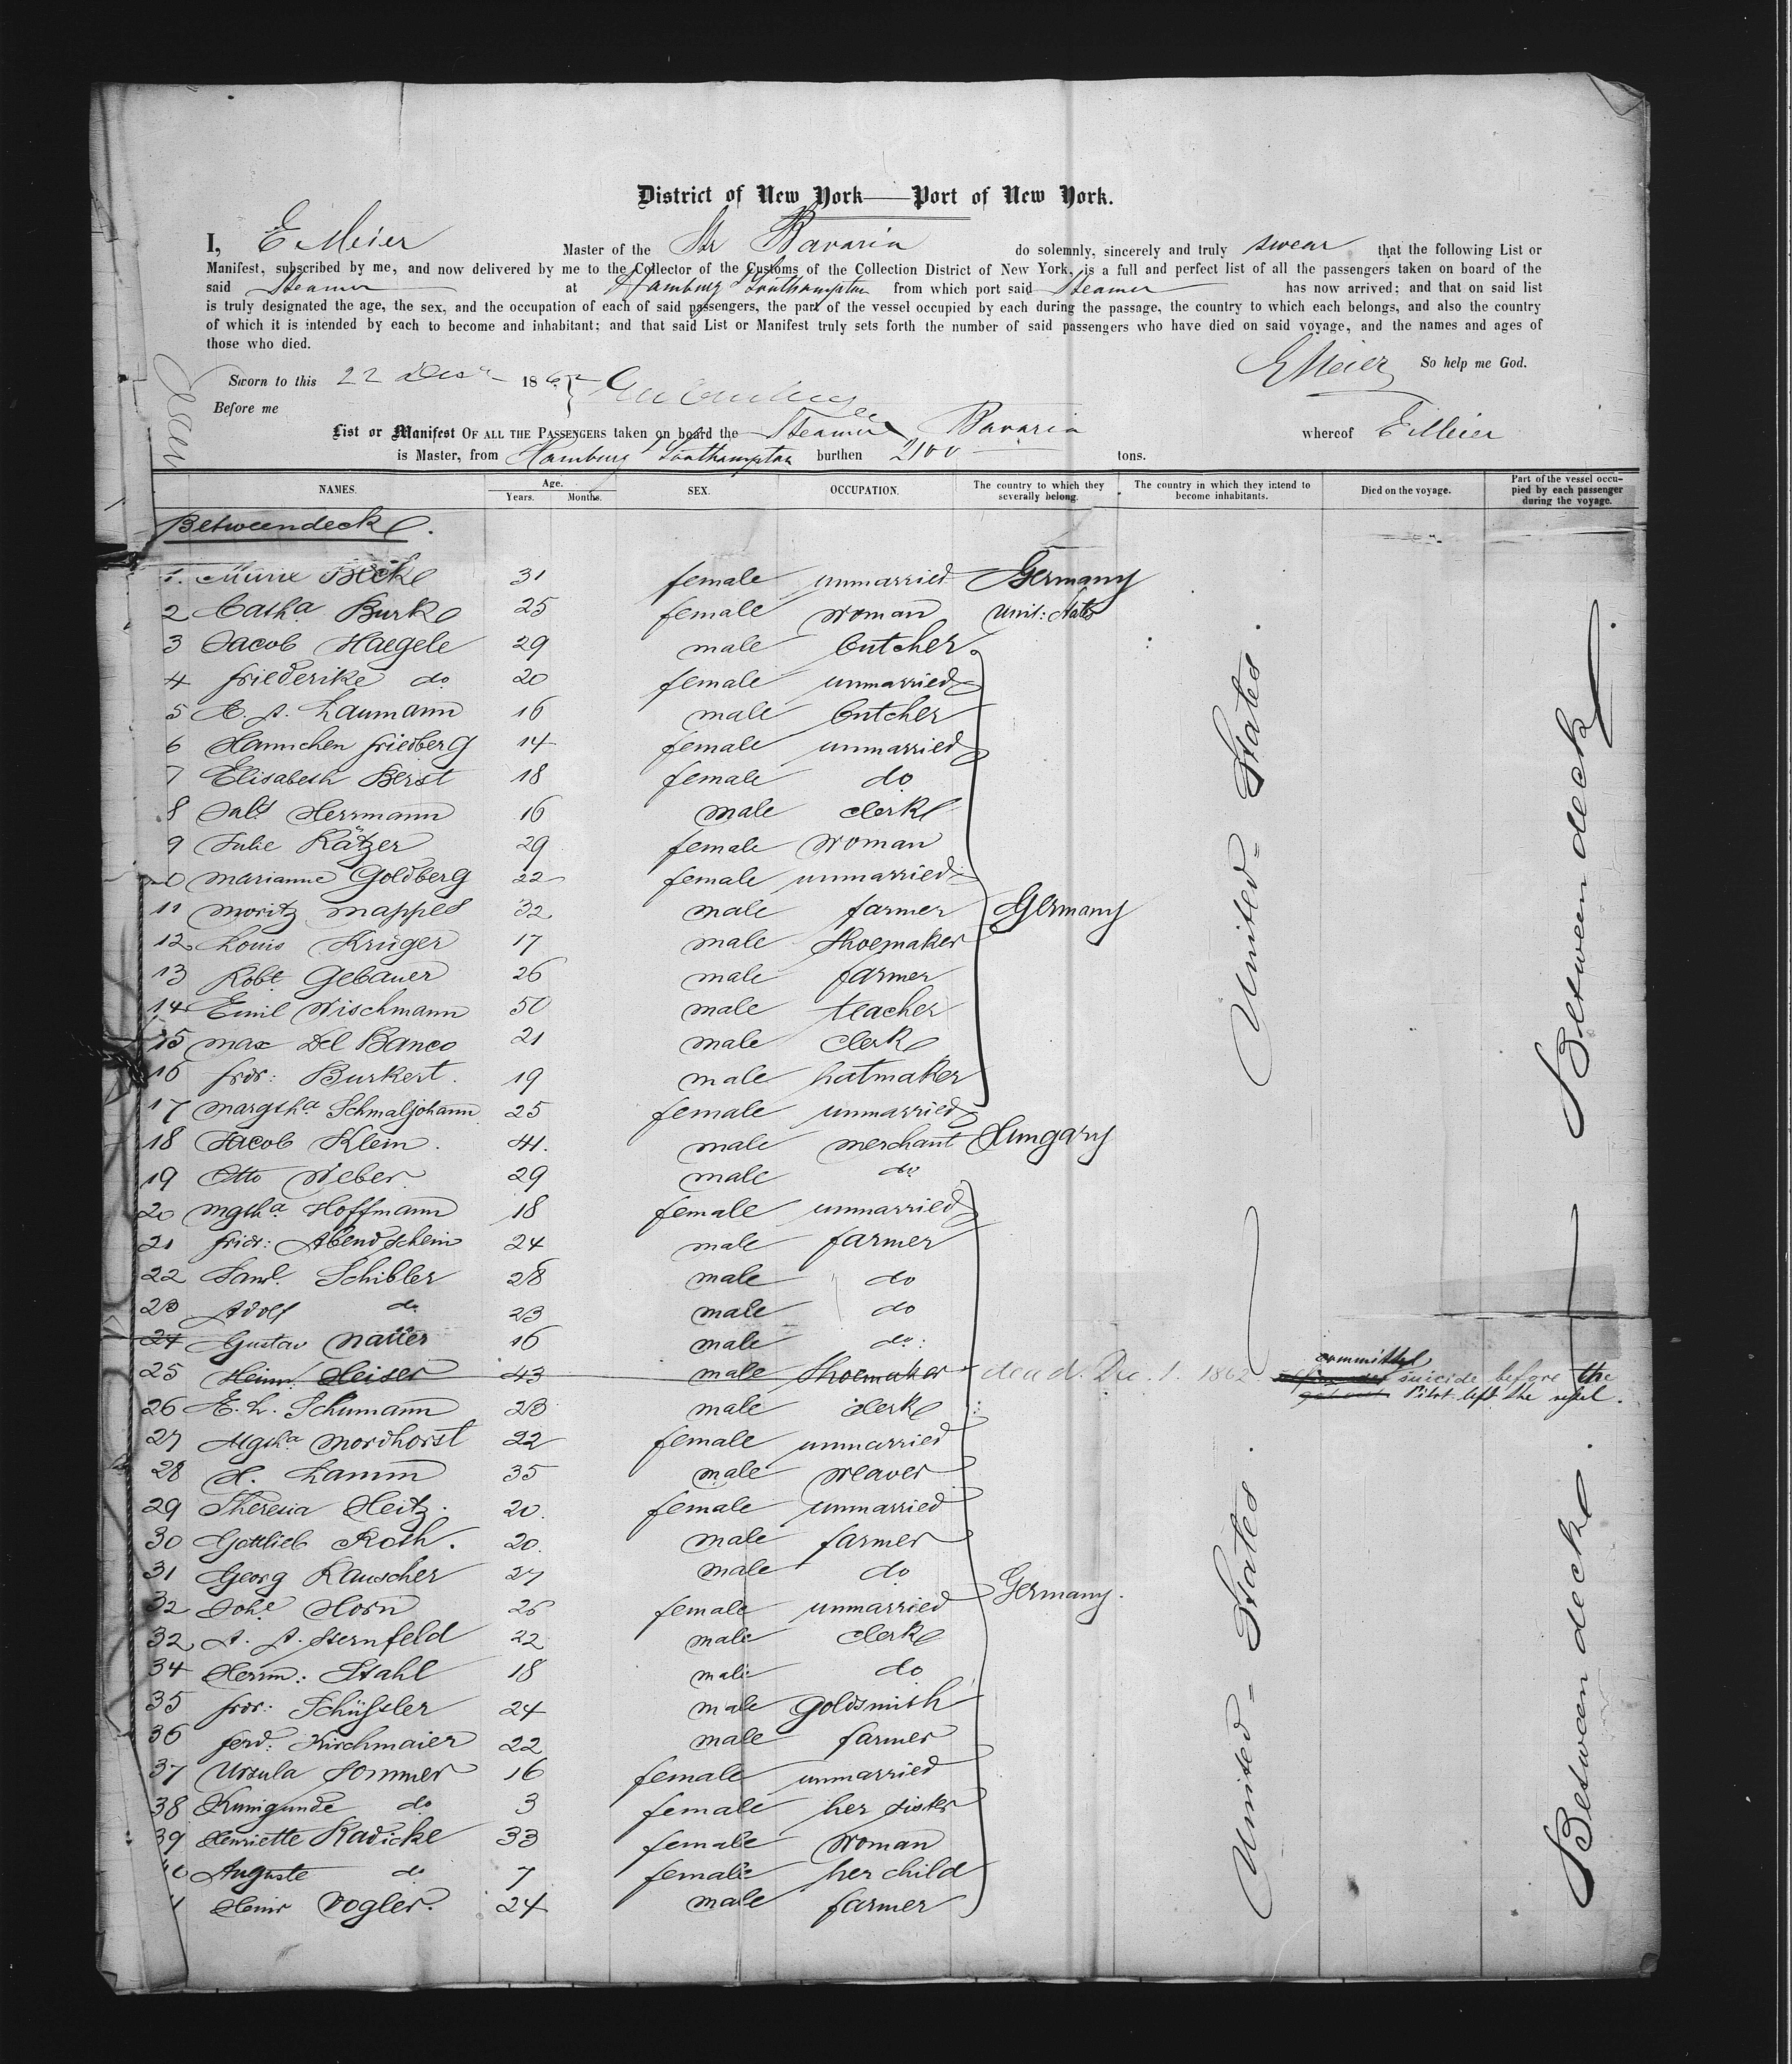 District of New York—Port of New York.
I, E Meier Master of the Str Bavaria do solemnly, sincerely and truly swear that the following List or
Manifest, subscribed by me, and now delivered by me to the Collector of the Customs of the Collection District of New York, is a full and perfect list of all the passengers taken on board of the
said Steamer at Hamburg & Southampton from which port said Steamer has now arrived; and that on said list
is truly designated the age, the sex, and the occupation of each of said passengers, the part of the vessel occupied by each during the passage, the country to which each belongs, and also the country
of which it is intended by each to become and inhabitant; and that said List or Manifest truly sets forth the number of said passengers who have died on said voyage, and the names and ages of
those who died.
E Meier So help me God.
Sworn to this 22 Decr 1862
Before me
List or Manifest OF ALL THE PASSENGERS taken on board the Steamer Bavaria whereof E Meier
is Master, from Hamburg Southampton burthen 2100 tons.
NAMES. Age. Years. Months. SEX. OCCUPATION. The country to which they severally belong. The country in which they intend to become inhabitants. Died on the voyage. Part of the vessel occupied by each passenger during the voyage.
Betweendeck.
1. Böcke 31 female unmarried Germany
2 Catha Burke 25 female woman Unit: States
3 Jacob Haegele 29 male butcher
4 friederike do 20 female unmarried
5 Laumann 16 male butcher
6 Hannchen friedberg 14 female unmarried
7 Elisabeth Berst 18 female do
8 Herrmann 16 male clerk
9 Julie Kätzer 29 female woman
10 Marianne Goldberg 22 female unmarried
11 Moritz Mappes 32 male farmer Germany
12 Louis Krüger 17 male shoemaker
13 Robt Gebauer 26 male farmer
14 Emil Wischmann 50 male teacher
15 Max Del Banco 21 male clerk
16 frdr: Burkert. 19 male hatmaker
17 Margtha Schmaljohann 25 female unmarried
18 Jacob Klein. 41. male merchant Hungary
19 Otto Weber 29 male do
20 Mgtha Hoffmann 18 female unmarried
21 fridr: Abendschein 24 male farmer
22 Saml. Schibler 28 male do
23 Adolf do 23 male do
24 Gustav 16 male do:
25 Heinr. Heiser 43 male shoemaker dead Dec. 1. 1862 committed suicide before the
Pilot left the vessel.
26 E. L. Schumann 23 male clerk
27 Mgtha Mordhorst 22 female unmarried
28 H. Lamm 35 male weaver
29 Theresia Heitz. 20. female unmarried
30 Gottlieb Roth. 20. male farmer
31 Georg Rauscher 27 male do
32 Johe Horn 26 female unmarried Germany.
32 A. A. Sternfeld 22 male clerk
34 Herrm: Stahl 18 male do
35 frdr: Schüssler 24 male goldsmith
36 ferd. Kirchmaier 22 male farmer
37 Ursula Sommer 16 female unmarried
38 Kunigunde do 3 female her sister
39 Henriette Radicke 33 female woman
Auguste do 7 female her child
Heinr Vogler. 24 male farmer
United States.
United States.
Between deck.
Between deck.